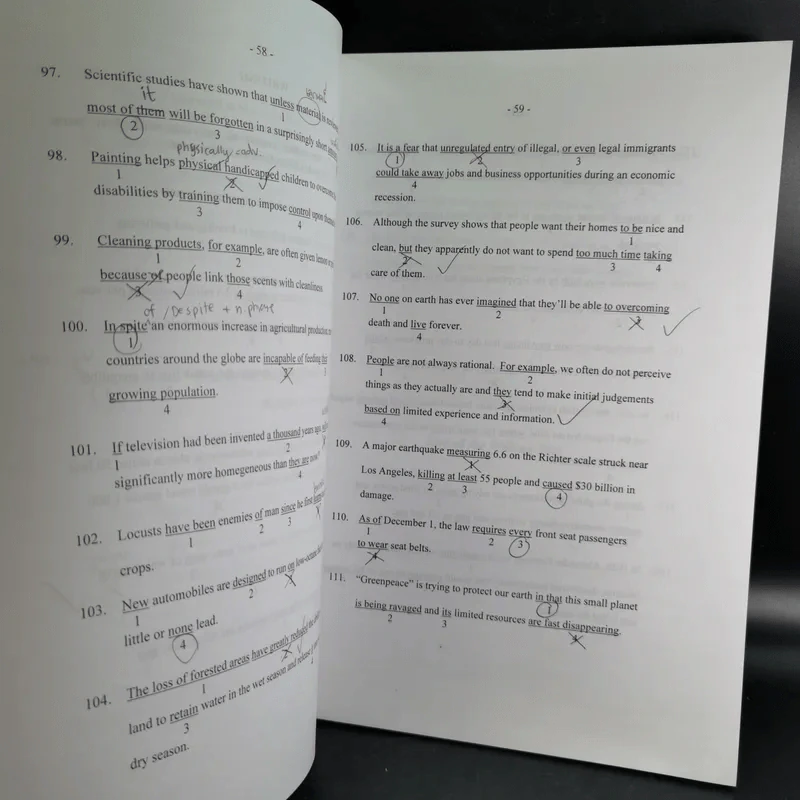 - 58 -
97. Scientific studies have shown that unless material is
it
most of them will be forgotten in a surprisingly short
1
2 3
physically adv.
98. Painting helps physical handicapped children to overcome
1 2
disabilities by training them to impose control upon
3 4
99. Cleaning products, for example, are often given lemon
1 2
because of people link those scents with cleanliness
3 4
of / Despite + n. phase
100. In spite an enormous increase in agricultural production
1
countries around the globe are incapable of feeding
2 3
growing population.
4
101. If television had been invented a thousand years ago,
1 2
significantly more homegeneous than they are now?
4
102. Locusts have been enemies of man since he first
1 2 3
crops.
103. New automobiles are designed to run on low-octane
1 2
little or none lead.
4
104. The loss of forested areas have greatly reduced the
1 2
land to retain water in the wet season and release
3
dry season.
- 59 -
105. It is a fear that unregulated entry of illegal, or even legal immigrants
1 2 3
could take away jobs and business opportunities during an economic
4
recession.
106. Although the survey shows that people want their homes to be nice and
1
clean, but they apparently do not want to spend too much time taking
2 3 4
care of them.
107. No one on earth has ever imagined that they'll be able to overcoming
1 2 3
death and live forever.
4
108. People are not always rational. For example, we often do not perceive
1 2
things as they actually are and they tend to make initial judgements
3
based on limited experience and information.
4
109. A major earthquake measuring 6.6 on the Richter scale struck near
1
Los Angeles, killing at least 55 people and caused $30 billion in
2 3 4
damage.
110. As of December 1, the law requires every front seat passengers
1 2 3
to wear seat belts.
4
111. "Greenpeace" is trying to protect our earth in that this small planet
1
is being ravaged and its limited resources are fast disappearing.
2 3 4